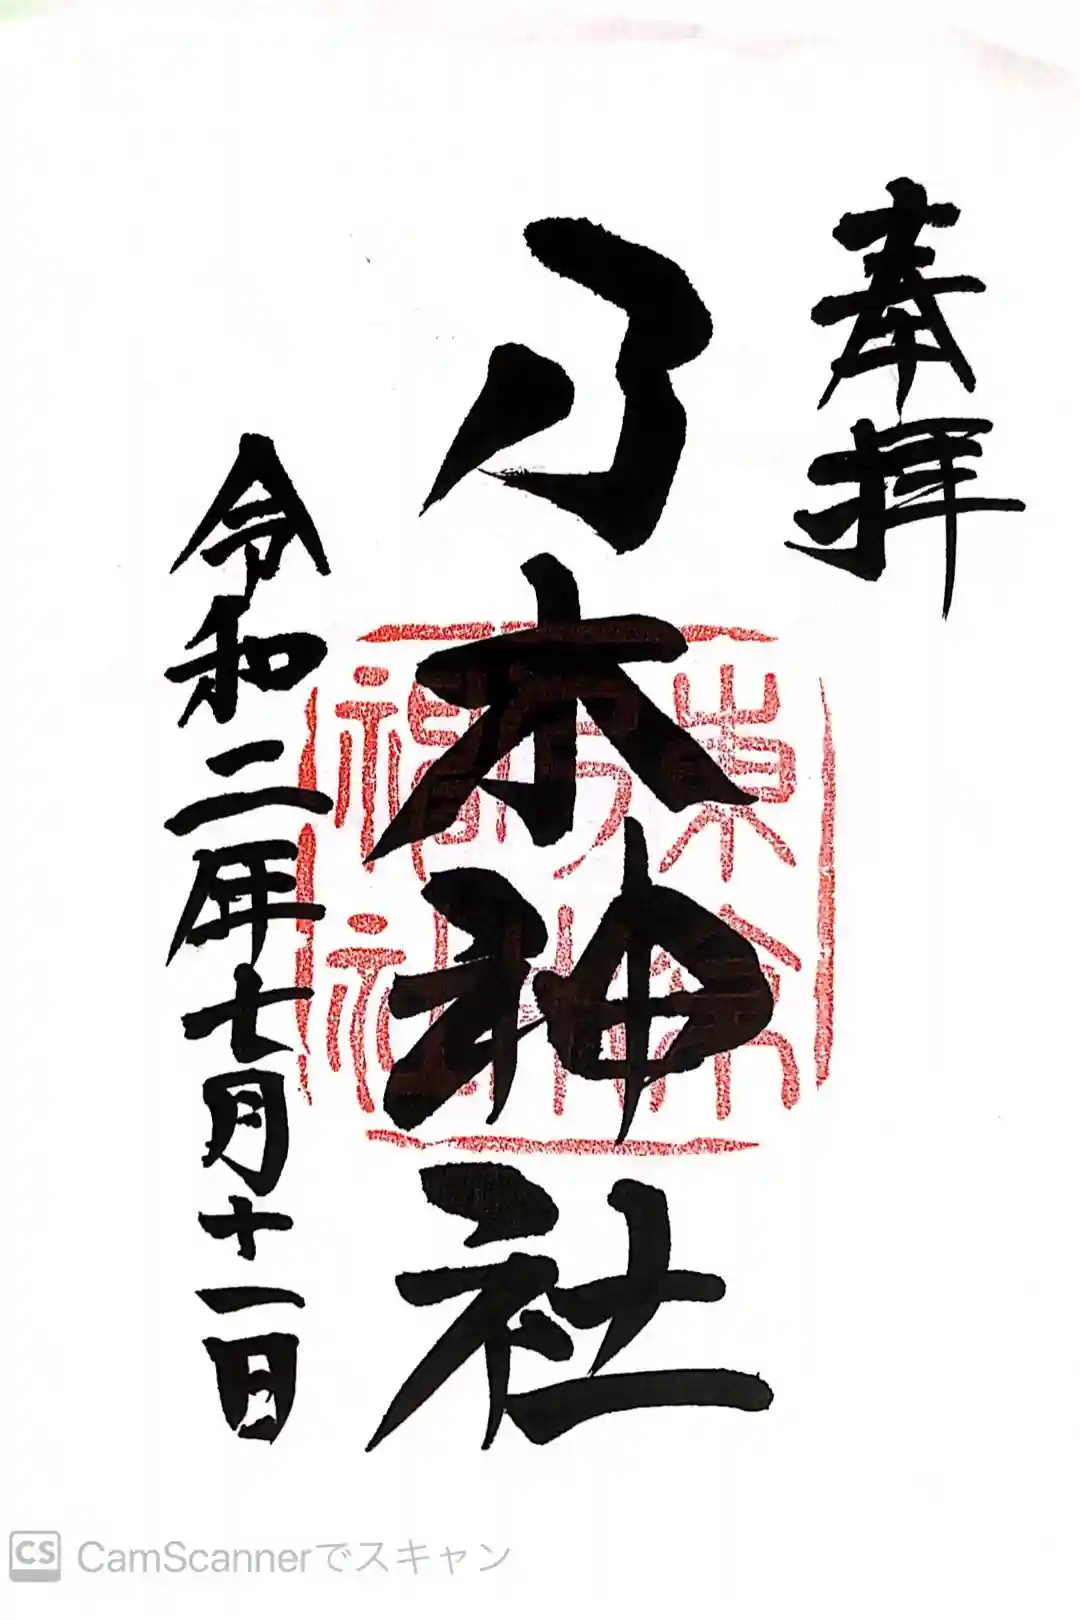 奉拝
乃木神社
東京
乃木
神社
令和二年七月十一日
CS CamScannerでスキャン